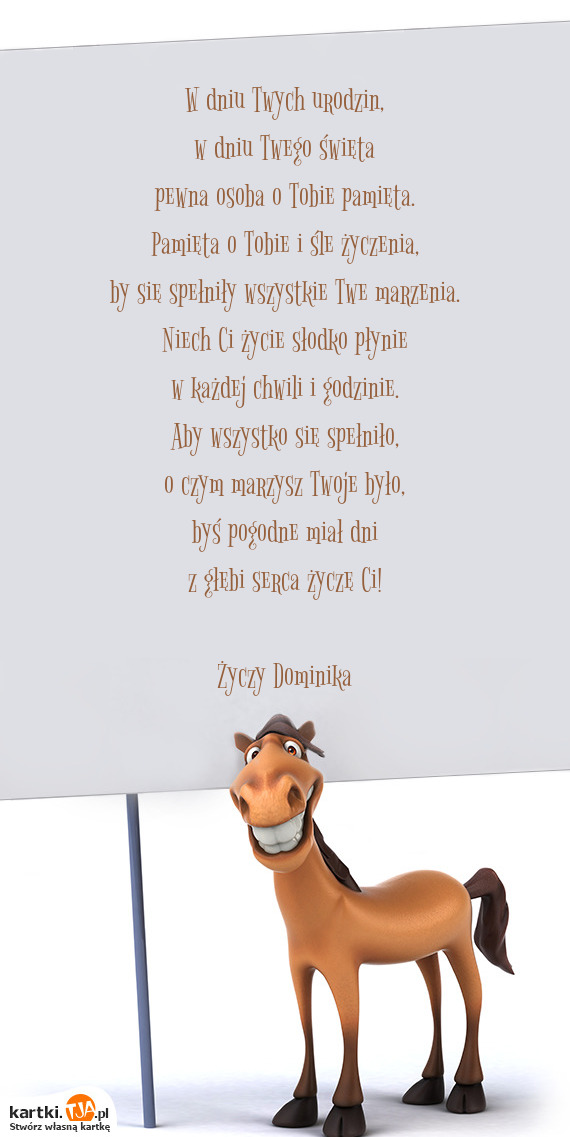 W dniu Twych urodzin,
w dniu Twego święta
pewna osoba o Tobie pamięta.
Pamięta o Tobie i śle życzenia,
by się spełniły wszystkie Twe marzenia.
Niech Ci życie słodko płynie
w każdej chwili i godzinie.
Aby wszystko się spełniło,
o czym marzysz Twoje było,
byś pogodne miał dni
z głębi serca życzę Ci!
Życzy Dominika
kartki.TJA.pl
Stwórz własną kartkę